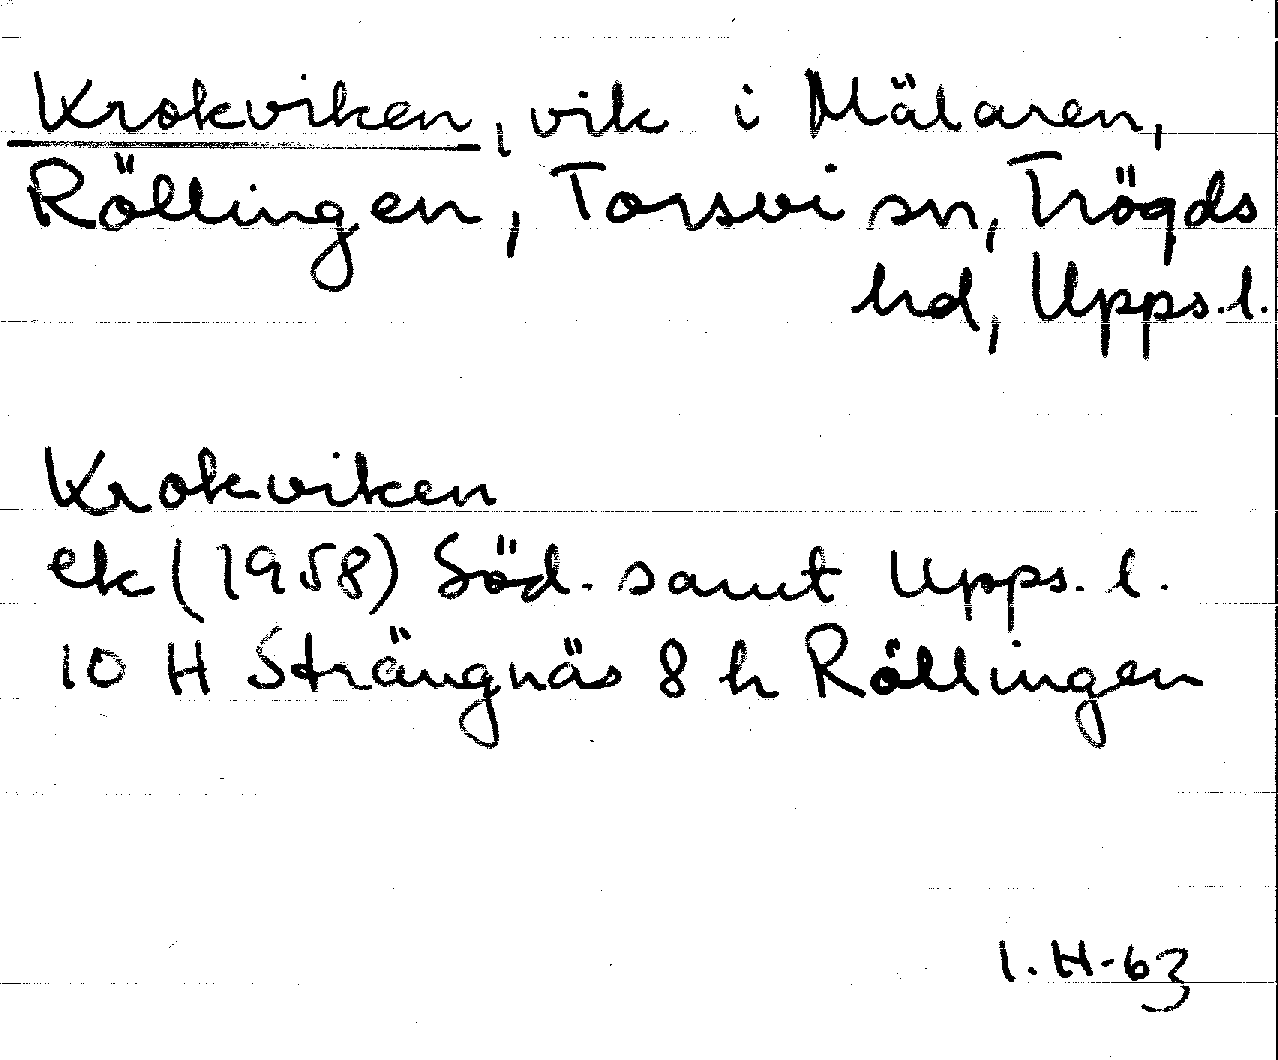 Krokviken, vik i Mälaren,
Röllingen, Torsvi sn, Trögds
hd, Upps. l.
Krokviken
ek (1958) Söd. samt Upps. l.
10 H Strängnäs 8 h Röllingen
I. H-63